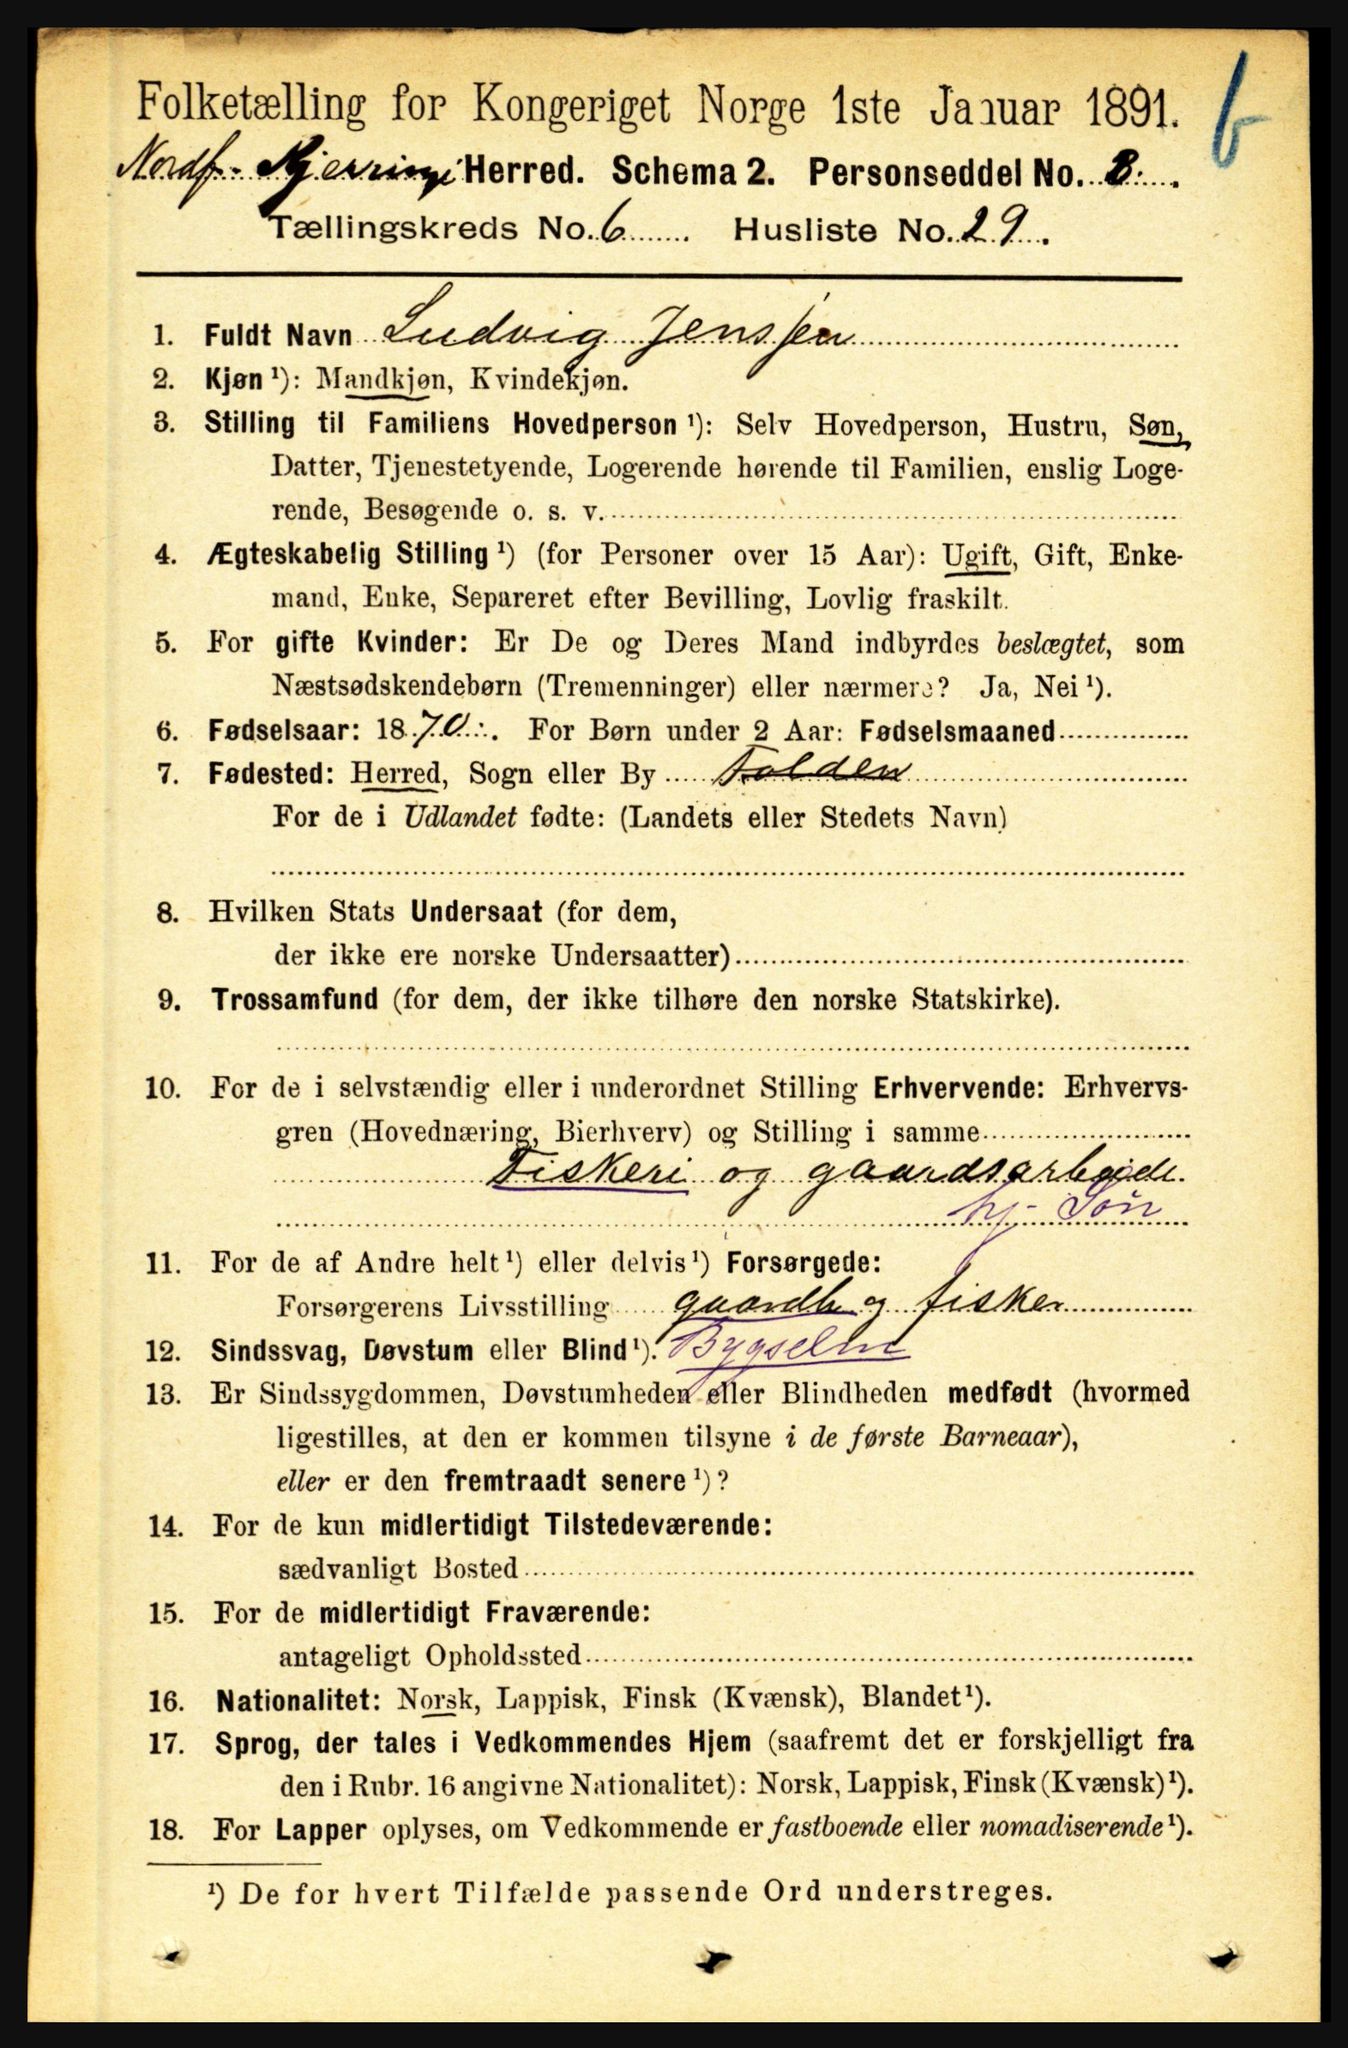 Folketælling for Kongeriget Norge 1ste Januar 1891.
6
Nordf- Kjerringø Herred. Schema 2. Personseddel No. 3.
Tællingskreds No. 6 Husliste No. 29.
1. Fuldt Navn Ludvig Jenssen
2. Kjøn ¹): Mandkjøn, Kvindekjøn.
3. Stilling til Familiens Hovedperson ¹): Selv Hovedperson, Hustru, Søn,
Datter, Tjenestetyende, Logerende hørende til Familien, enslig Loge-
rende, Besøgende o. s. v.
4. Ægteskabelig Stilling ¹) (for Personer over 15 Aar): Ugift, Gift, Enke-
mand, Enke, Separeret efter Bevilling, Lovlig fraskilt.
5. For gifte Kvinder: Er De og Deres Mand indbyrdes beslægtet, som
Næstsødskendebørn (Tremenninger) eller nærmere? Ja, Nei ¹).
6. Fødselsaar: 1870. For Børn under 2 Aar: Fødselsmaaned
7. Fødested: Herred, Sogn eller By Folden
For de i Udlandet fødte: (Landets eller Stedets Navn)
8. Hvilken Stats Undersaat (for dem,
der ikke ere norske Undersaatter)
9. Trossamfund (for dem, der ikke tilhøre den norske Statskirke).
10. For de i selvstændig eller i underordnet Stilling Erhvervende: Erhvervs-
gren (Hovednæring, Bierhverv) og Stilling i samme
Fiskeri og gaardsarbeide.
hj- Søn
11. For de af Andre helt ¹) eller delvis ¹) Forsørgede:
Forsørgerens Livsstilling gaardb og fisker
12. Sindssvag, Døvstum eller Blind ¹). Bygselm
13. Er Sindssygdommen, Døvstumheden eller Blindheden medfødt (hvormed
ligestilles, at den er kommen tilsyne i de første Barneaar),
eller er den fremtraadt senere ¹)?
14. For de kun midlertidigt Tilstedeværende:
sædvanligt Bosted
15. For de midlertidigt Fraværende:
antageligt Opholdssted
16. Nationalitet: Norsk, Lappisk, Finsk (Kvænsk), Blandet ¹).
17. Sprog, der tales i Vedkommendes Hjem (saafremt det er forskjelligt fra
den i Rubr. 16 angivne Nationalitet): Norsk, Lappisk, Finsk (Kvænsk) ¹).
18. For Lapper oplyses, om Vedkommende er fastboende eller nomadiserende ¹).
¹) De for hvert Tilfælde passende Ord understreges.